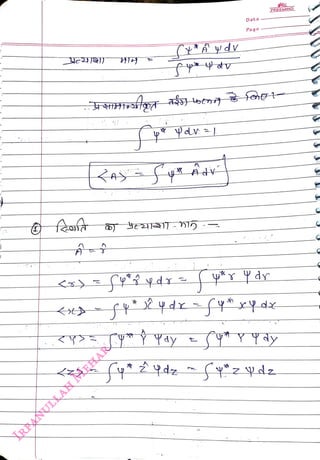 Date
Page
प्रत्याशा मान = ∫ψ* Â ψ dv / ∫ψ* ψ dv
प्रसामान्यीकृत फलन के लिए :-
∫ψ* ψ dv = 1
<A> = ∫ψ* Â dv
① स्थिति का प्रत्याशा मान :-
Â = r̂
<r> = ∫ψ* r̂ ψ dr = ∫ψ* r ψ dr
<x> = ∫ψ* x̂ ψ dx = ∫ψ* x ψ dx
<y> = ∫ψ* ŷ ψ dy = ∫ψ* y ψ dy
<z> = ∫ψ* ẑ ψ dz = ∫ψ* z ψ dz
IRFANULLAH MEHAR